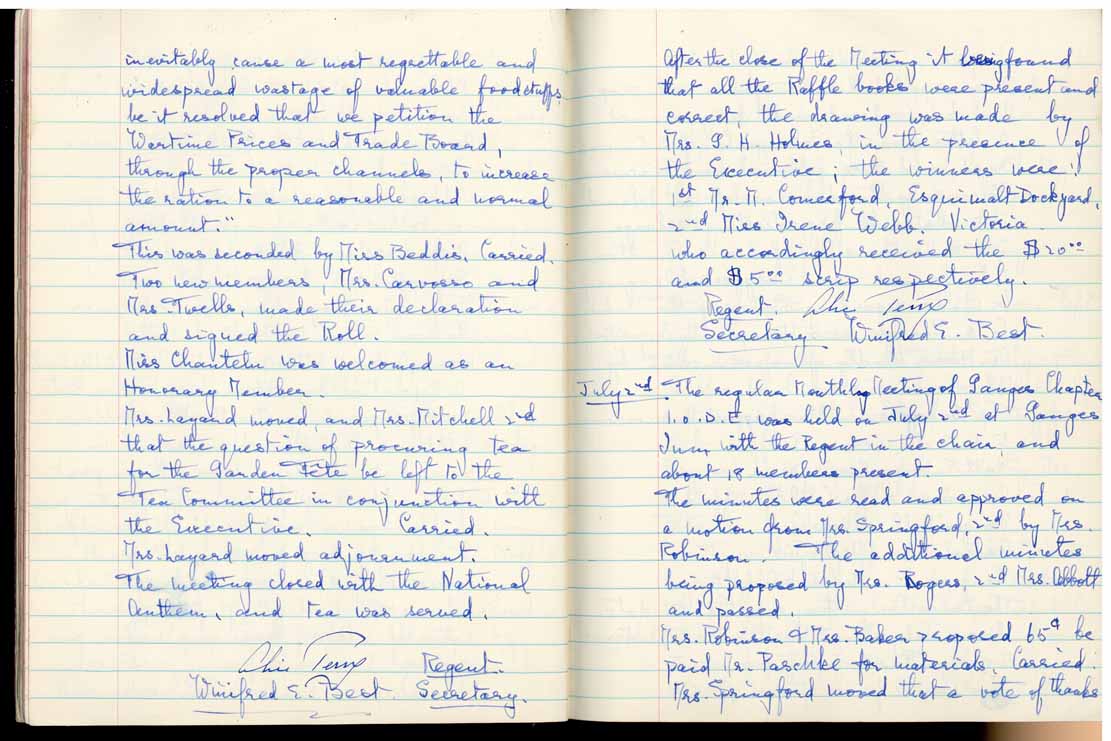 inevitably cause a most regrettable and
widespread wastage of valuable foodstuffs
be it resolved that we petition the
Wartime Prices and Trade Board,
through the proper channels, to increase
the ration to a reasonable and normal
amount."
This was seconded by Miss Beddis. Carried.
Two new members, Mrs. Carvosso and
Mrs. Twells, made their declaration
and signed the Roll.
Miss Chantelu was welcomed as an
Honorary Member.
Mrs. Layard moved, and Mrs. Mitchell 2nd
that the question of procuring tea
for the Garden Fête be left to the
Tea Committee in conjunction with
the Executive. Carried.
Mrs. Layard moved adjournment.
The meeting closed with the National
Anthem, and tea was served.
Regent.
Winifred E. Best. Secretary.
After the close of the Meeting it being found
that all the Raffle books were present and
correct, the drawing was made by
Mrs. G. H. Holmes, in the presence of
the Executive; the winners were:
1st Mr. M. Comerford, Esquimalt Dockyard.
2nd Miss Irene Webb. Victoria.
who accordingly received the $20.00
and $5.00 scrip respectively.
Regent.
Secretary. Winifred E. Best.
July 2nd. The regular Monthly Meeting of Ganges Chapter
I.O.D.E. was held on July 2nd at Ganges
Inn, with the Regent in the chair, and
about 18 members present.
The minutes were read and approved on
a motion from Mrs. Springford, 2nd by Mrs.
Robinson. The additional minutes
being proposed by Mrs. Rogers, 2nd Mrs. Abbott
and passed.
Mrs. Robinson & Mrs. Baker proposed 65¢ be
paid Mr. Paschke for materials. Carried.
Mrs. Springford moved that a vote of thanks